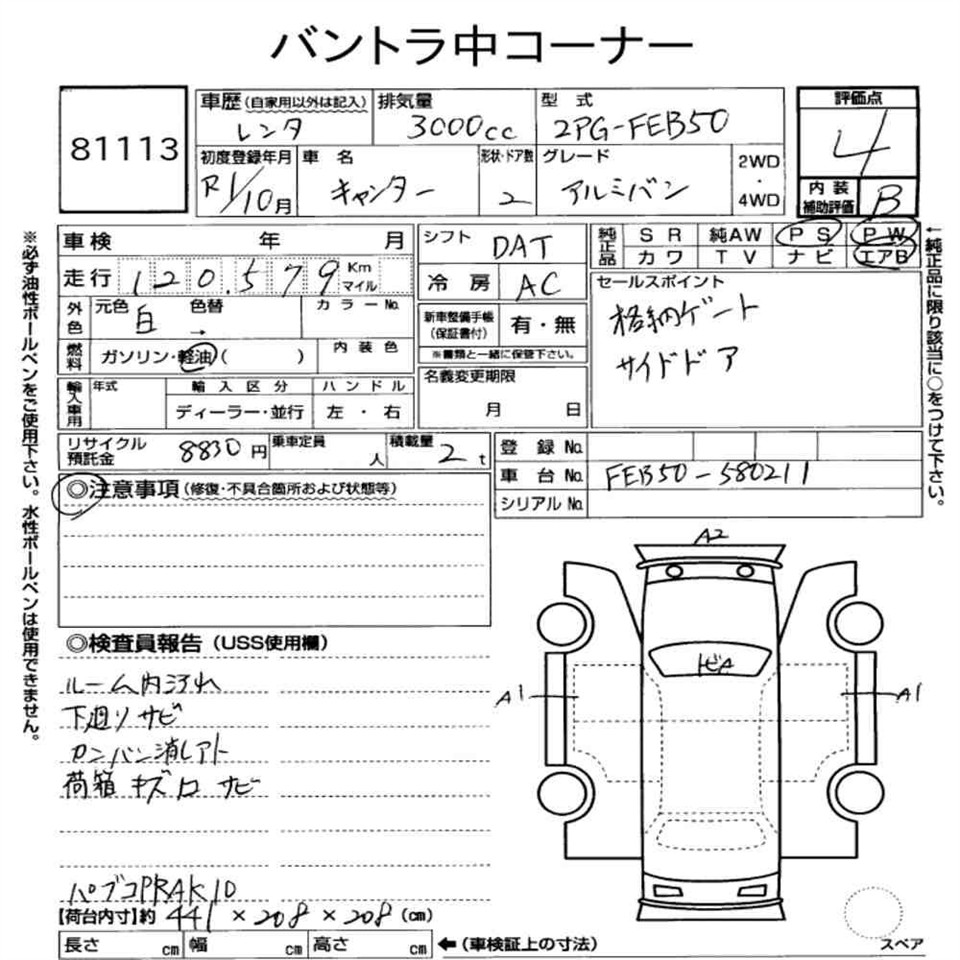 バントラ中コーナー
81113
車歴(自家用以外は記入) 排気量 型式 評価点
レンタ 3000cc 2PG-FEB50 4
初度登録年月 車名 形状・ドア数 グレード 2WD・4WD
R1/10月 キャンター 2 アルミバン
内装補助評価 B
車検 年 月 シフト DAT 純正品 SR 純AW PS PW
カワ TV ナビ エアB
走行 120.579 Km マイル 冷房 AC セールスポイント
外色 元色 白 色替 → カラーNo. 新車整備手帳(保証書付) 有・無 格納ゲート
※書類と一緒に保管下さい。
燃料 ガソリン・軽油( ) 内装色 サイドドア
名義変更期限
月 日
輸入車用 年式 輸入区分 ハンドル
ディーラー・並行 左・右
リサイクル預託金 8830円 乗車定員 人 積載量 2t
登録No.
車台No. FEB50-580211
シリアルNo.
◎注意事項(修復・不具合箇所および状態等)
◎検査員報告(USS使用欄)
ルーム内汚れ
下廻りサビ
カンバン消しアト
荷箱キズ凹サビ
パブコPRAK10
【荷台内寸】約 441×208×208(cm)
長さ cm 幅 cm 高さ cm ←(車検証上の寸法)
A2
トビA
A1
A1
スペア
※必ず油性ボールペンをご使用下さい。水性ボールペンは使用できません。
←純正品に限り該当に○をつけて下さい。